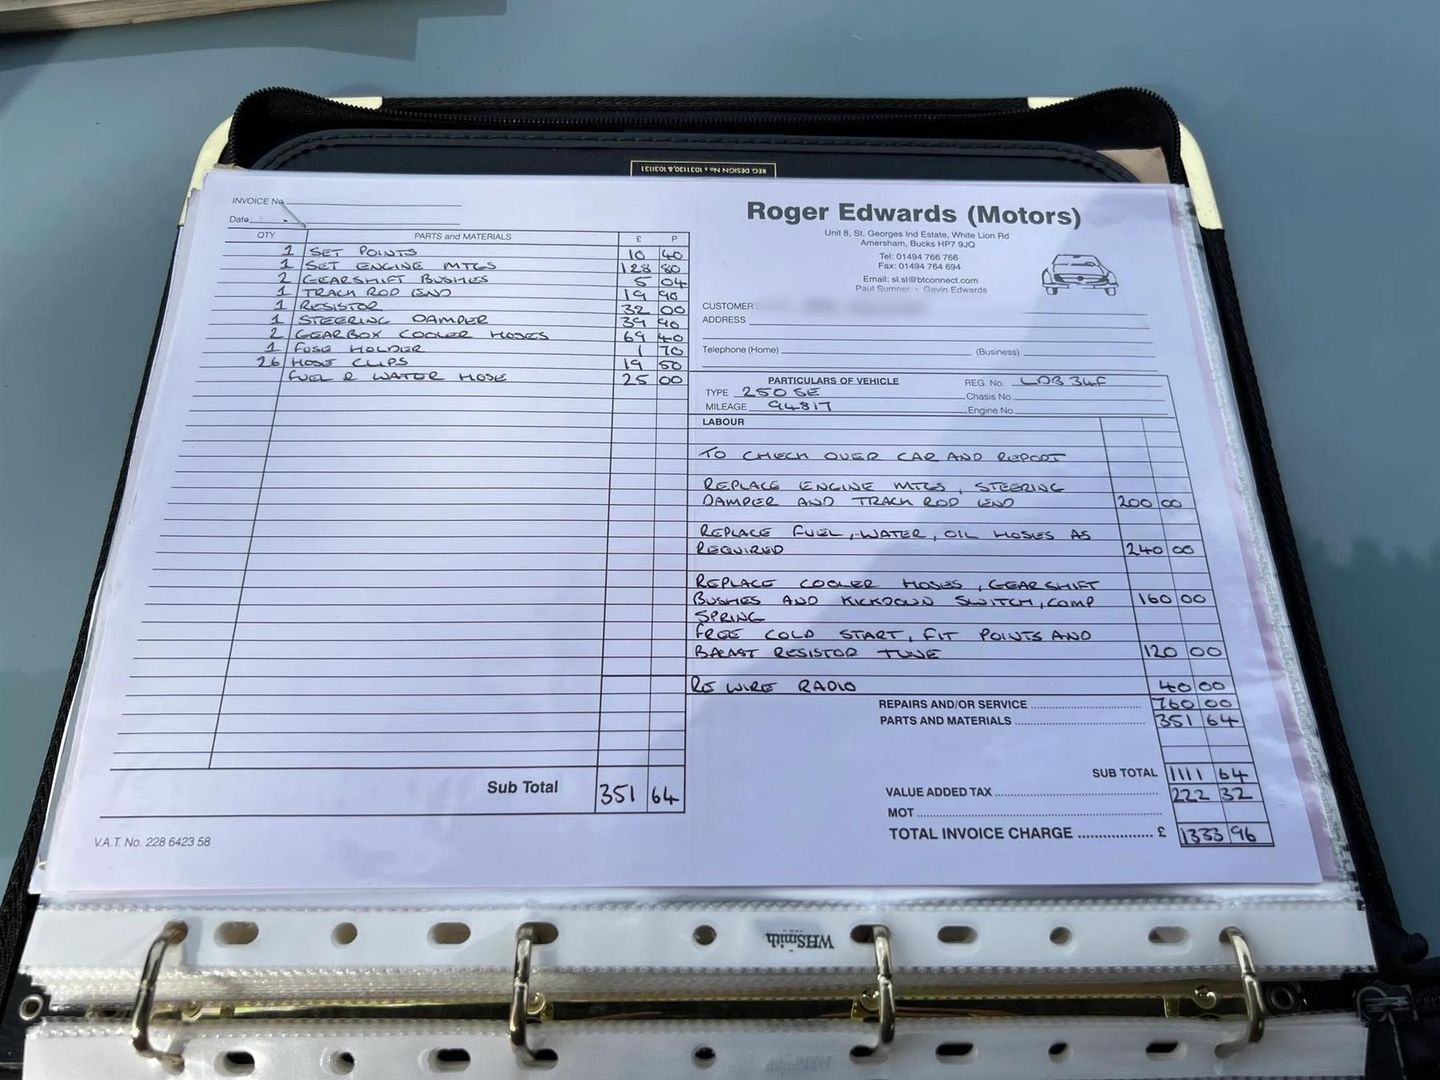 REG DESIGN Nos 1031130, & 1031131
INVOICE No
Date
QTY. PARTS and MATERIALS £ P
1 SET POINTS 10 40
1 SET ENGINE MTGS 128 80
2 GEARSHIFT BUSHES 5 04
1 TRACK ROD END 19 90
1 RESISTOR 32 00
1 STEERING DAMPER 39 90
2 GEARBOX COOLER HOSES 69 40
1 FUSE HOLDER 1 70
26 HOSE CLIPS 19 50
FUEL & WATER HOSE 25 00
Sub Total 351 64
V.A.T. No. 228 6423 58
Roger Edwards (Motors)
Unit 8, St. Georges Ind Estate, White Lion Rd
Amersham, Bucks HP7 9JQ
Tel: 01494 766 766
Fax: 01494 764 694
Email: sl.sl@btconnect.com
Paul Sumner · Gavin Edwards
CUSTOMER
ADDRESS
Telephone (Home) (Business)
PARTICULARS OF VEHICLE REG. No.
TYPE 250 SE Chasis No
MILEAGE 94817 Engine No
LABOUR
TO CHECK OVER CAR AND REPORT
REPLACE ENGINE MTGS, STEERING
DAMPER AND TRACK ROD END 200 00
REPLACE FUEL, WATER, OIL HOSES AS
REQUIRED 240 00
REPLACE COOLER HOSES, GEARSHIFT
BUSHES AND KICKDOWN SWITCH, COMP 160 00
SPRING
FREE COLD START, FIT POINTS AND
BALAST RESISTOR TUNE 120 00
RE WIRE RADIO 40 00
REPAIRS AND/OR SERVICE 760 00
PARTS AND MATERIALS 351 64
SUB TOTAL 1111 64
VALUE ADDED TAX 222 32
MOT
TOTAL INVOICE CHARGE £ 1333 96
WHSmith